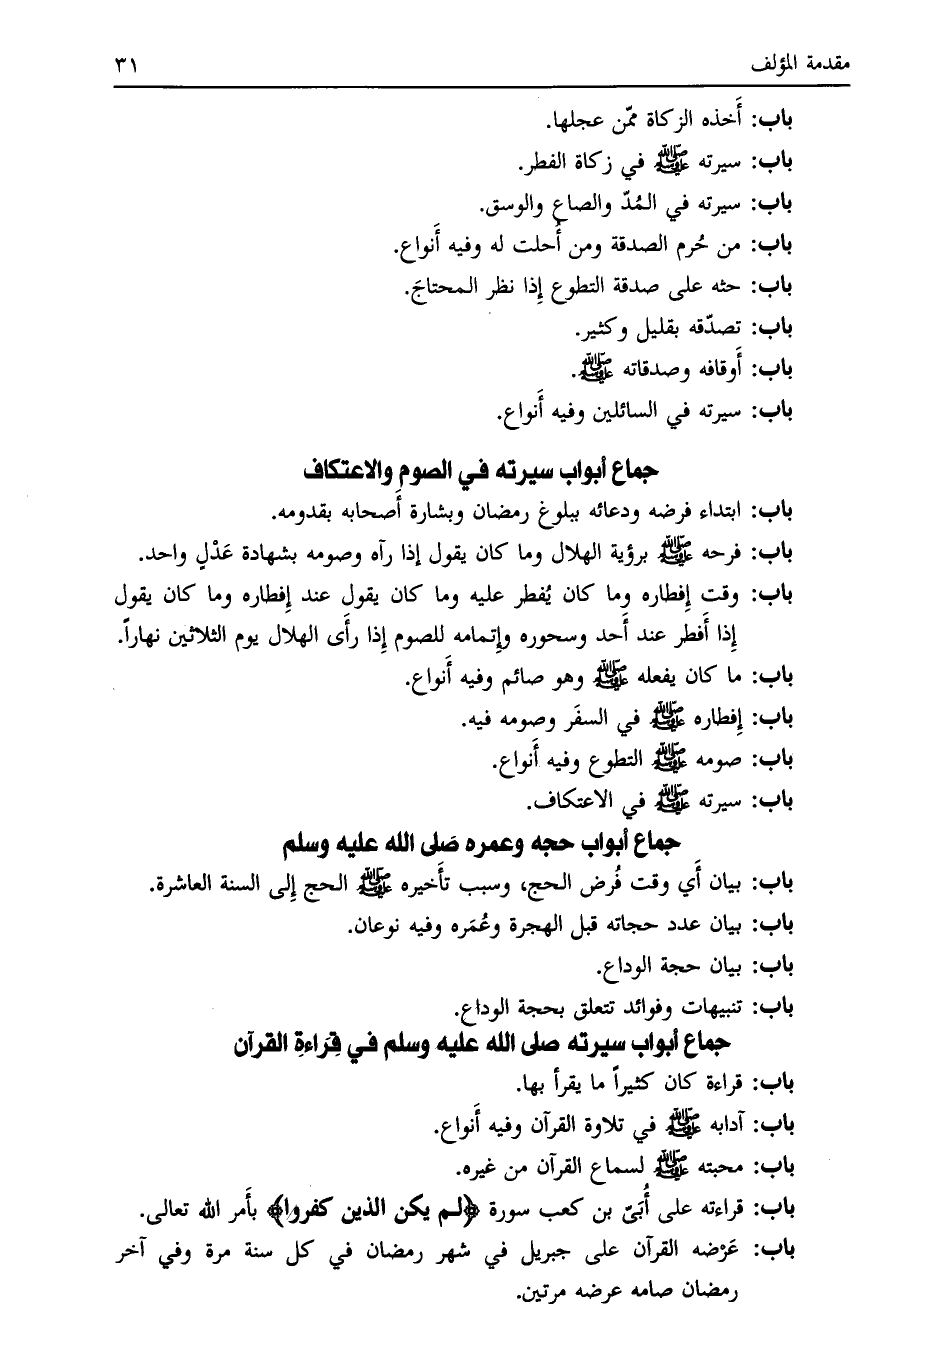 مقدمة المؤلف ٣١
باب: أَخذه الزكاة ممّن عجلها.
باب: سيرته ﷺ في زكاة الفطر.
باب: سيرته في المُدّ والصاع والوسق.
باب: من حُرم الصدقة ومن أُحلت له وفيه أَنواع.
باب: حثه على صدقة التطوع إِذا نظر المحتاجَ.
باب: تصدّقه بقليل وكثير.
باب: أَوقافه وصدقاته ﷺ.
باب: سيرته في السائلين وفيه أَنواع.
جماع أبواب سيرته في الصوم والاعتكاف
باب: ابتداء فرضه ودعائه ببلوغ رمضان وبشارة أَصحابه بقدومه.
باب: فرحه ﷺ برؤية الهلال وما كان يقول إذا رآه وصومه بشهادة عَدْلٍ واحد.
باب: وقت إِفطاره وما كان يُفطر عليه وما كان يقول عند إِفطاره وما كان يقول
إِذا أَفطر عند أَحد وسحوره وإِتمامه للصوم إِذا رأَى الهلال يوم الثلاثين نهاراً.
باب: ما كان يفعله ﷺ وهو صائم وفيه أَنواع.
باب: إِفطاره ﷺ في السفَر وصومه فيه.
باب: صومه ﷺ التطوع وفيه أَنواع.
باب: سيرته ﷺ في الاعتكاف.
جماع أبواب حجه وعمره صَلى الله عليه وسلم
باب: بيان أَي وقت فُرض الحج، وسبب تأَخيره ﷺ الحج إِلى السنة العاشرة.
باب: بيان عدد حجاته قبل الهجرة وعُمَره وفيه نوعان.
باب: بيان حجة الوداع.
باب: تنبيهات وفوائد تتعلق بحجة الوداع.
جماع أبواب سيرته صلى الله عليه وسلم في قِرَاءةِ القرآن
باب: قراءة كان كثيراً ما يقرأ بها.
باب: آدابه ﷺ في تلاوة القرآن وفيه أَنواع.
باب: محبته ﷺ لسماع القرآن من غيره.
باب: قراءته على أُبَيّ بن كعب سورة ﴿لم يكن الذين كفروا﴾ بأَمر الله تعالى.
باب: عَرْضه القرآن على جبريل في شهر رمضان في كل سنة مرة وفي آخر
رمضان صامه عرضه مرتين.